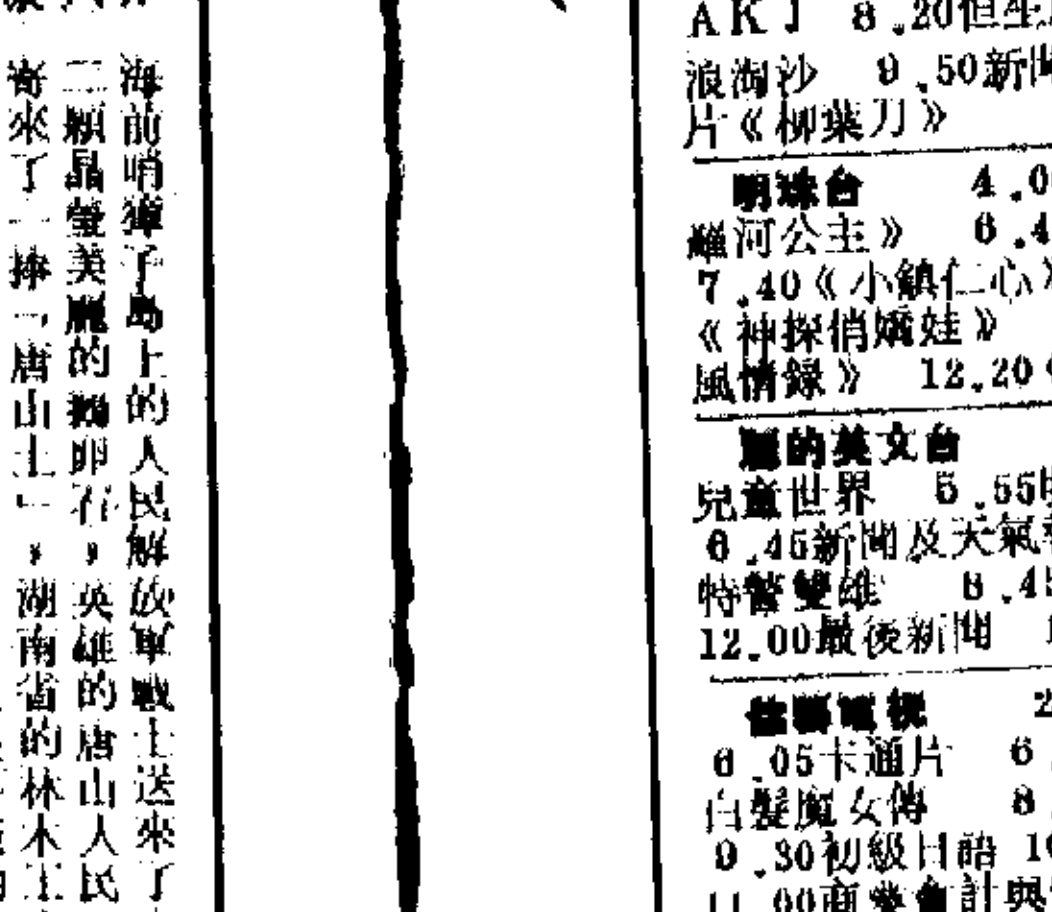 海前哨獐子島上的人民解放軍戰士送來了
二顆晶瑩美麗的鵝卵石，英雄的唐山人民
寄來了一捧「唐山土」，湖南省的林木工
8.20
浪淘沙 9.50新聞
片《柳葉刀》
明珠台 4.0
河公主》 6.4
7.40《小鎮仁心》
《神探俏嬌娃》
風情錄》 12.20
麗的英文台
兒童世界 5.55
6.45新聞及天氣
特警雙雄 8.45
12.00最後新聞
佳藝電視 2
6.05卡通片 6
白髮魔女傳 8
9.30初級日語 10
11.00商業會計與